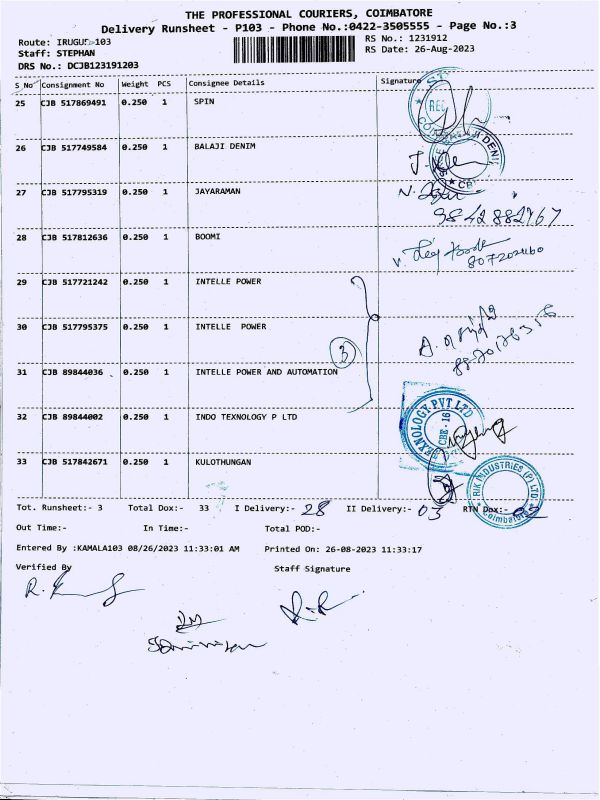 THE PROFESSIONAL COURIERS, COIMBATORE
Delivery Runsheet - P103 - Phone No.:0422-3505555 - Page No.:3
Route: IRUGUR-103
RS No.: 1231912
Staff: STEPHAN
RS Date: 26-Aug-2023
DRS No.: DCJB123191203
S No Consignment No Weight PCS Consignee Details Signature
25 CJB 517869491 0.250 1 SPIN
26 CJB 517749584 0.250 1 BALAJI DENIM
27 CJB 517795319 0.250 1 JAYARAMAN
9842882767
28 CJB 517812636 0.250 1 BOOMI
29 CJB 517721242 0.250 1 INTELLE POWER
30 CJB 517795375 0.250 1 INTELLE POWER
3
31 CJB 89844036 0.250 1 INTELLE POWER AND AUTOMATION
32 CJB 89844002 0.250 1 INDO TEXNOLOGY P LTD
TEXNOLOGY PVT LTD
CBE - 16
33 CJB 517842671 0.250 1 KULOTHUNGAN
RIK INDUSTRIES (P) LTD
Coimbatore
Tot. Runsheet:- 3 Total Dox:- 33 I Delivery:- 28 II Delivery:- 03 RTN Dox:-
Out Time:- In Time:- Total POD:-
Entered By :KAMALA103 08/26/2023 11:33:01 AM Printed On: 26-08-2023 11:33:17
Verified By Staff Signature